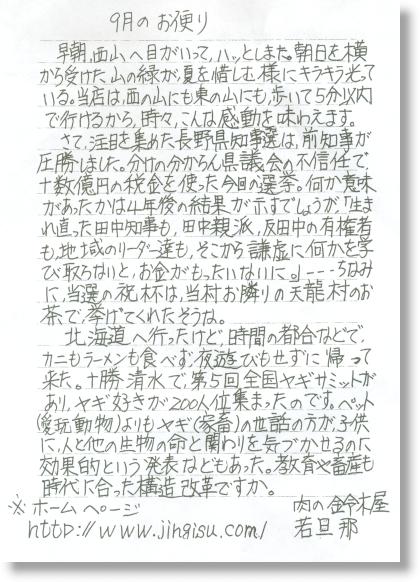 9月のお便り
早朝、西山へ目がいって、ハッとしました。朝日を横
から受けた山の緑が、夏を惜しむ様にキラキラ光って
いる。当店は、西の山にも東の山にも、歩いて5分以内
で行けるから、時々、こんな感動を味わえます。
さて、注目を集めた長野県知事選は、前知事が
圧勝しました。分けの分からん県議会の不信任で
十数億円の税金を使った今回の選挙。何か意味
があったかは4年後の結果が示すでしょうが「生ま
れ直った田中知事も、田中親派、反田中の有権者
も、地域のリーダー達も、そこから謙虚に何かを学
び取らないと、お金がもったいないに。」---ちなみ
に、当選の祝杯は、当村お隣りの天龍村のお
茶で、挙げてくれたそうな。
北海道へ行ったけど、時間の都合などで、
カニもラーメンも食べず、夜遊びもせずに帰って
来た。十勝清水で、第5回全国ヤギサミットが
あり、ヤギ好きが200人位集まったのです。ペット
(愛玩動物)よりもヤギ(家畜)の世話の方が、子供
に、人と他の生物の命と関わりを気づかせるのに
効果的という発表などもあった。教育や畜産も
時代に合った構造改革ですか。
※ホームページ 肉の鈴木屋
http://www.jingisu.com/ 若旦那